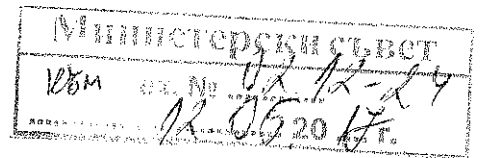 Министерски съвет
към вх. № 02.12-24
12.05.2017 г.